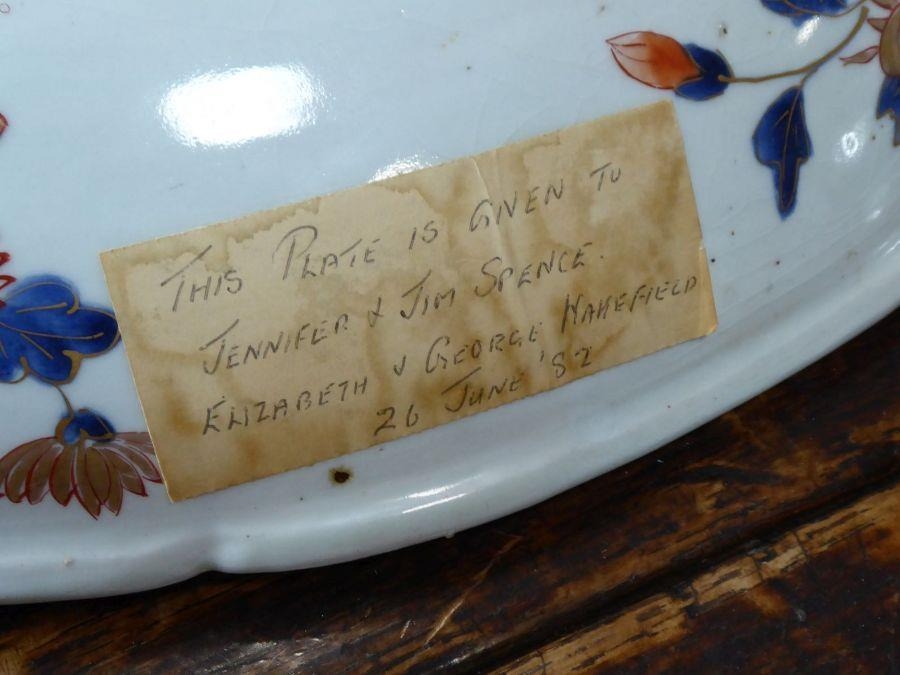 THIS PLATE IS GIVEN TO
JENNIFER & JIM SPENCE.
ELIZABETH & GEORGE WAKEFIELD
26 JUNE '82